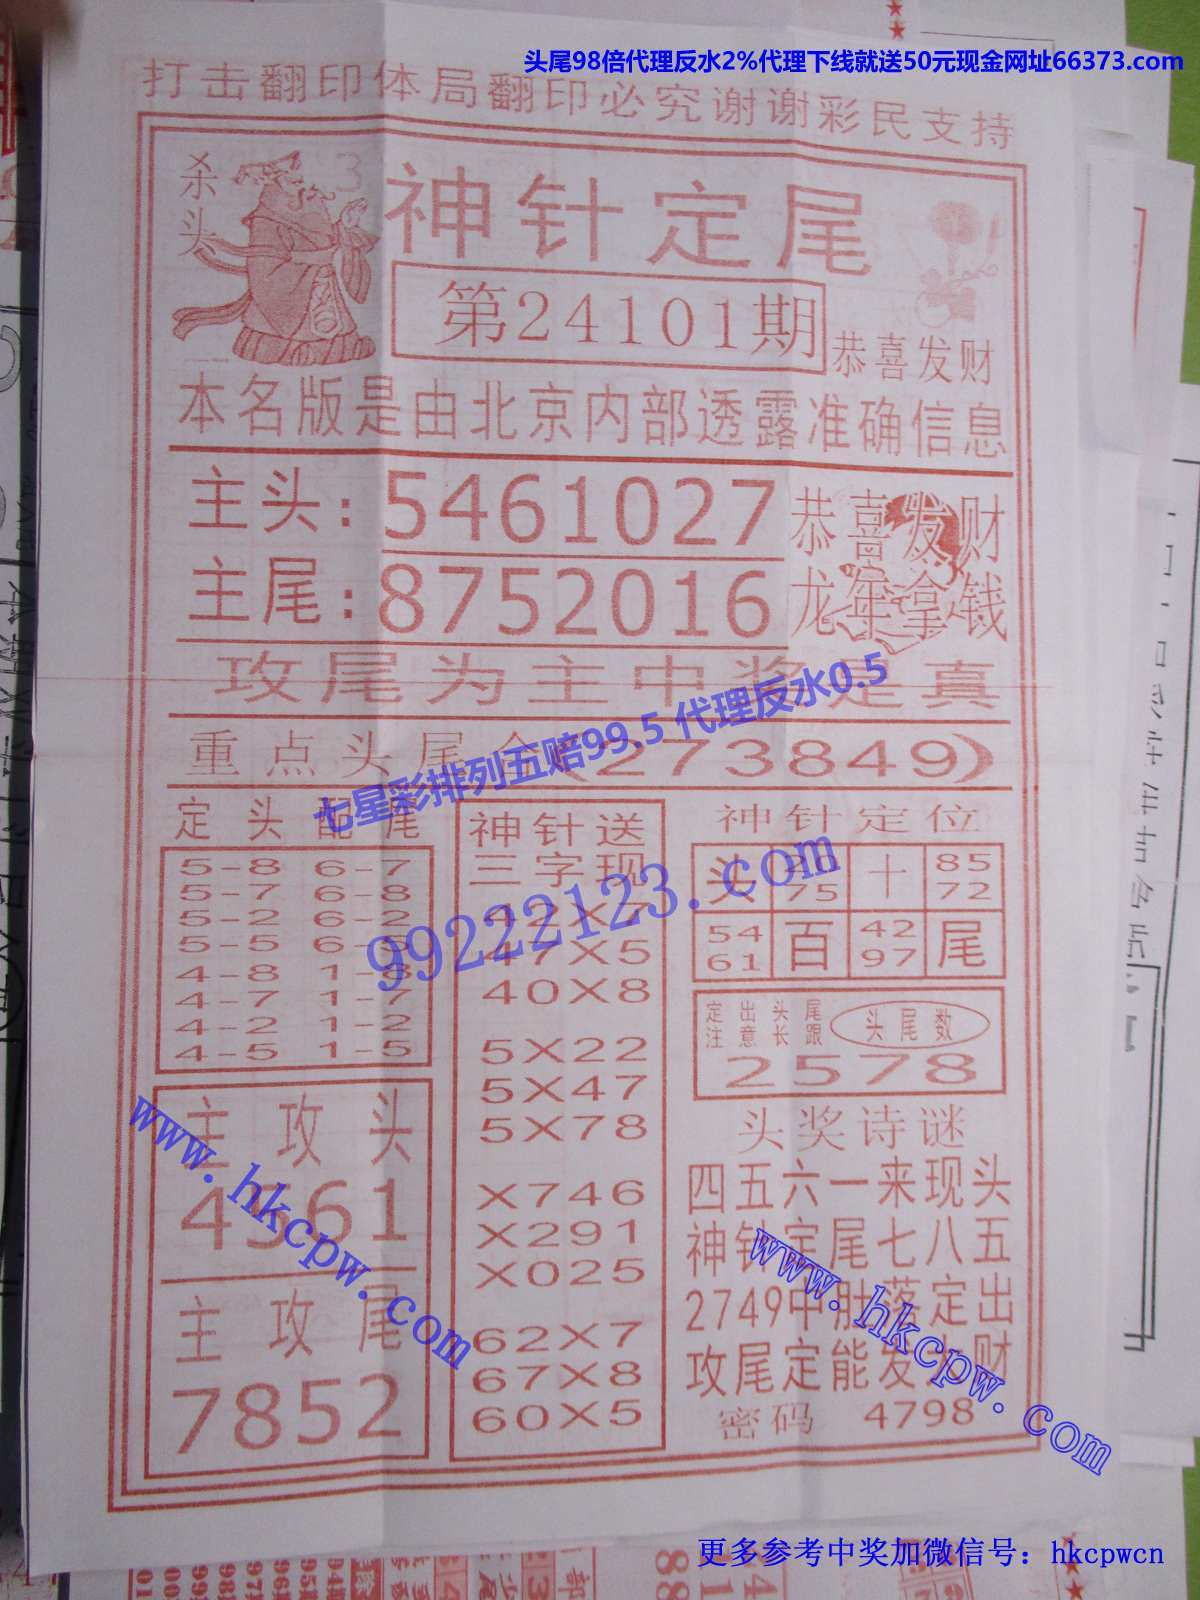 头尾98倍代理反水2%代理下线就送50元现金网址66373.com
打击翻印体局翻印必究谢谢彩民支持
杀头
3
神针定尾
第24101期
恭喜发财
本名版是由北京内部透露准确信息
主头:5461027
主尾:8752016
恭喜发财
龙年拿钱
攻尾为主中奖是真
七星彩排列五赔99.5 代理反水0.5
重点头尾合(273849)
定头配尾
5-8 6-7
5-7 6-8
5-2 6-2
5-5 6-5
4-8 1-8
4-7 1-7
4-2 1-2
4-5 1-5
主攻头
4561
主攻尾
7852
神针送
三字现
47X5
40X8
5X22
5X47
5X78
X746
X291
X025
62X7
67X8
60X5
99222123.com
神针定位
头 75 十 85 72
54 61 百 42 97 尾
定出头尾
注意长跟
头尾数
2578
头奖诗谜
四五六一来现头
神针定尾七八五
2749中肚落定出
攻尾定能发大财
密码 4798
www.hkcpw.com
www.hkcpw.com
更多参考中奖加微信号:hkcpwcn